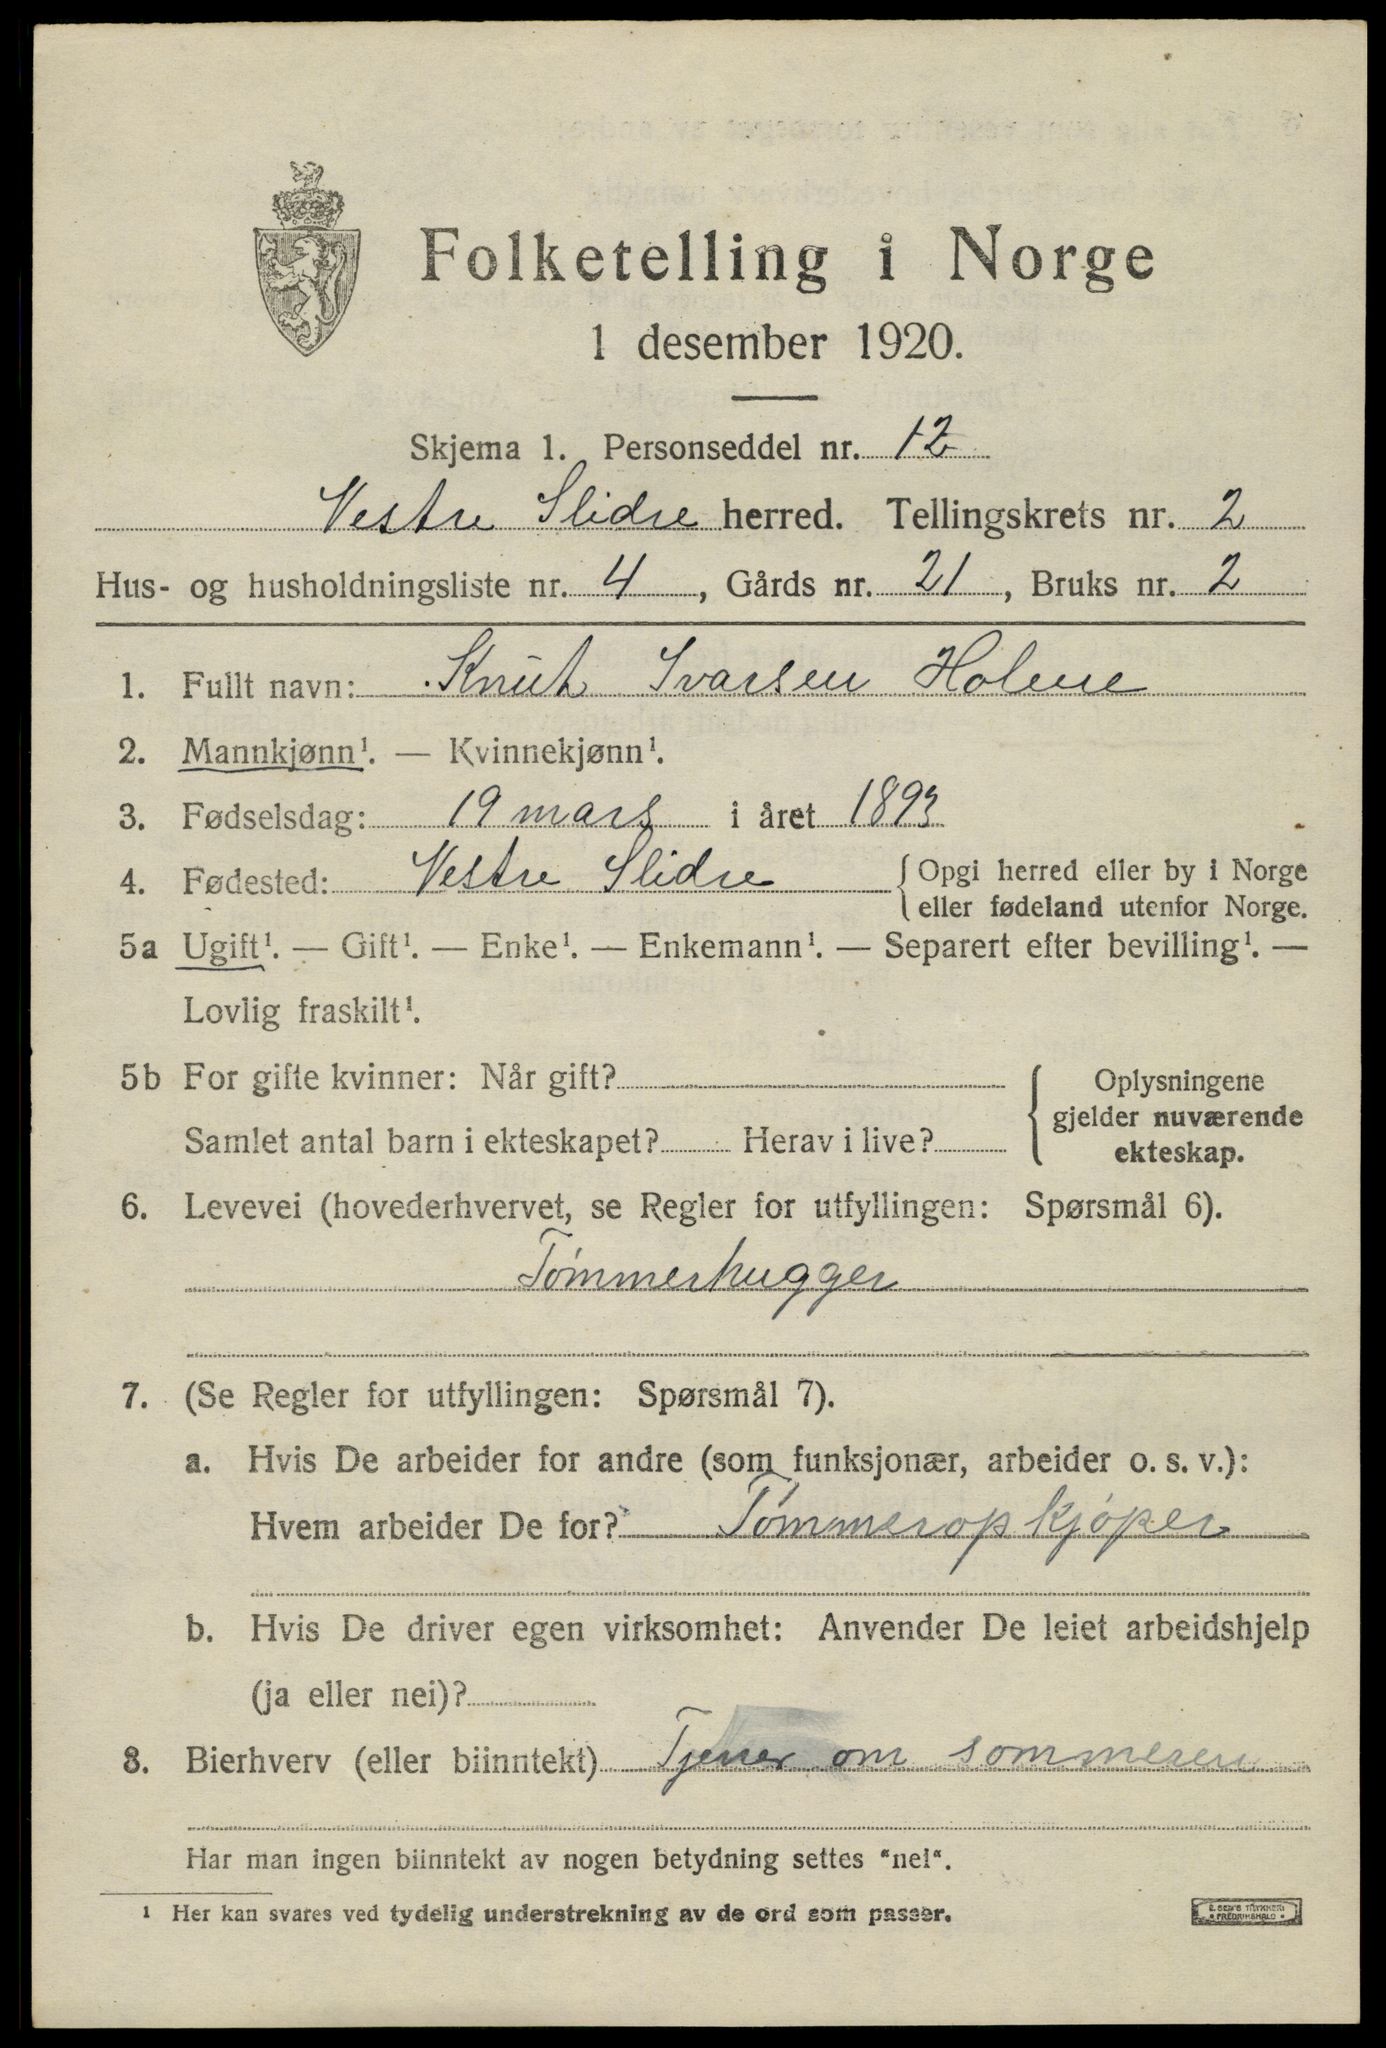 Folketelling i Norge
1 desember 1920.
Skjema 1. Personseddel nr. 12
Vestre Slidre herred. Tellingskrets nr. 2
Hus- og husholdningsliste nr. 4, Gårds nr. 21, Bruks nr. 2
1. Fullt navn: Knut Ivarsen Holene
2. Mannkjønn¹. — Kvinnekjønn¹.
3. Fødselsdag: 19 mars i året 1893
4. Fødested: Vestre Slidre { Opgi herred eller by i Norge
eller fødeland utenfor Norge.
5a Ugift¹. — Gift¹. — Enke¹. — Enkemann¹. — Separert efter bevilling¹. —
Lovlig fraskilt¹.
5b For gifte kvinner: Når gift?
Samlet antal barn i ekteskapet? Herav i live?
Oplysningene
gjelder nuværende
ekteskap.
6. Levevei (hovederhvervet, se Regler for utfyllingen: Spørsmål 6).
Tømmerhugger
7. (Se Regler for utfyllingen: Spørsmål 7).
a. Hvis De arbeider for andre (som funksjonær, arbeider o. s. v.):
Hvem arbeider De for? Tømmeropkjøper
b. Hvis De driver egen virksomhet: Anvender De leiet arbeidshjelp
(ja eller nei)?
8. Bierhverv (eller biinntekt) Tjener om sommeren
Har man ingen biinntekt av nogen betydning settes "nei".
¹ Her kan svares ved tydelig understrekning av de ord som passer.
E. SEM'S TRYKKERI
FREDRIKSHALD